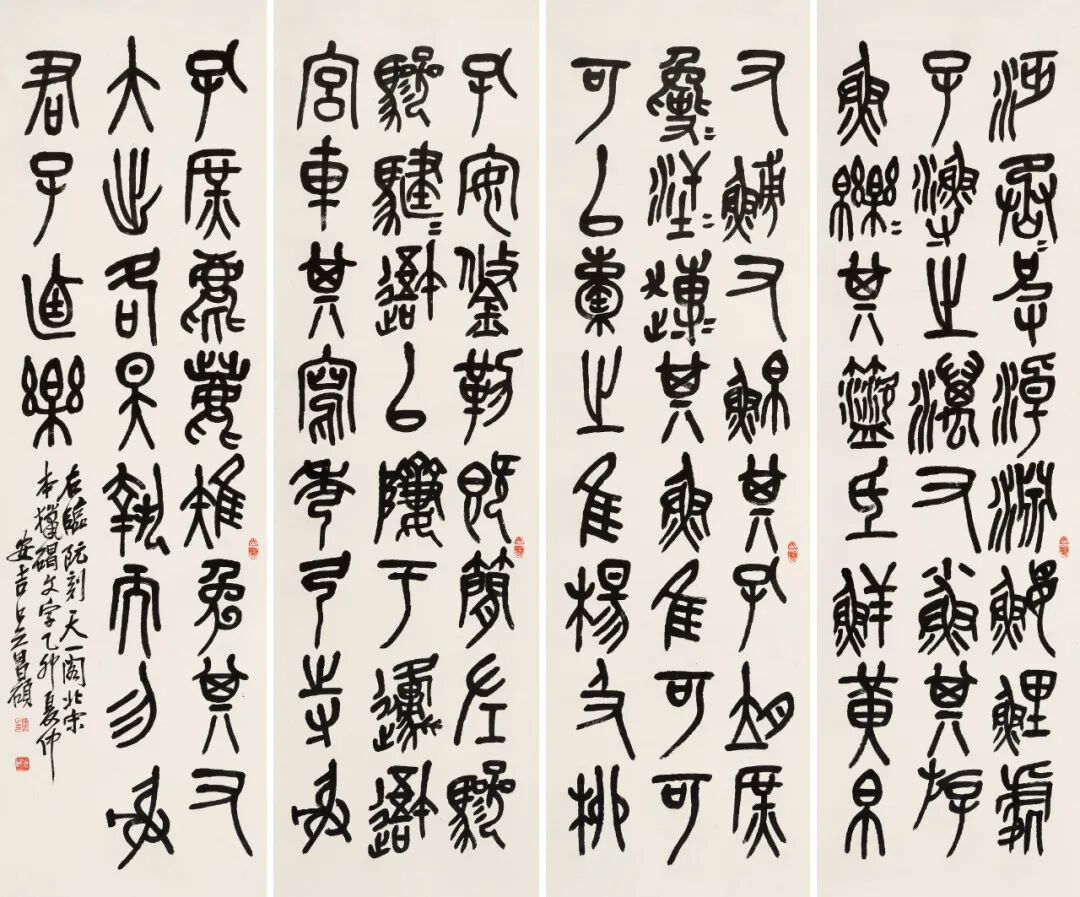 沔丞淖淵鰋鯉處
子漁之澫又小魚其斿
魚皪=其盜氐鮮黃帛
又又鮊其孔庶
汗=趩=其魚隹可可
可以橐之隹楊及柳
孔安鋚勒既簡左驂
驂騝=避以隮于邍避
宮車其寫秀弓寺射
孔庶麀鹿雉兔其又
大出各昊執而勿射
君子逌樂
右臨阮刻天一閣北宋
本獵碣文字乙卯夏仲
安吉吳昌碩